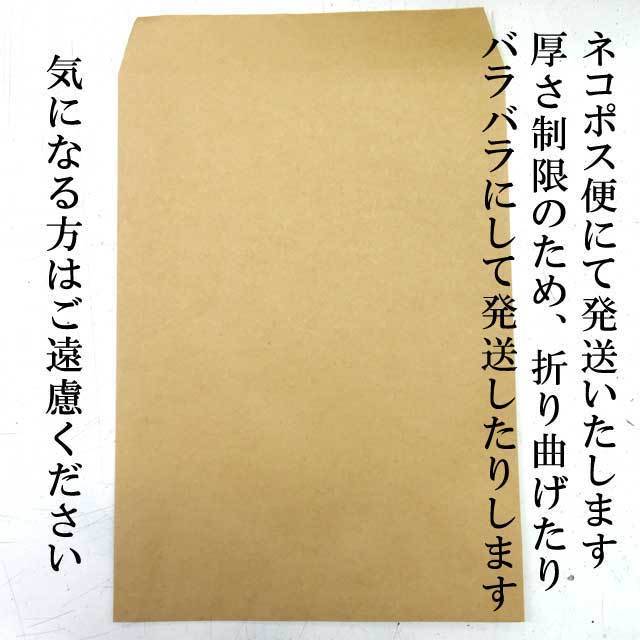 ネコポス便にて発送いたします
厚さ制限のため、折り曲げたり
バラバラにして発送したりします
気になる方はご遠慮ください